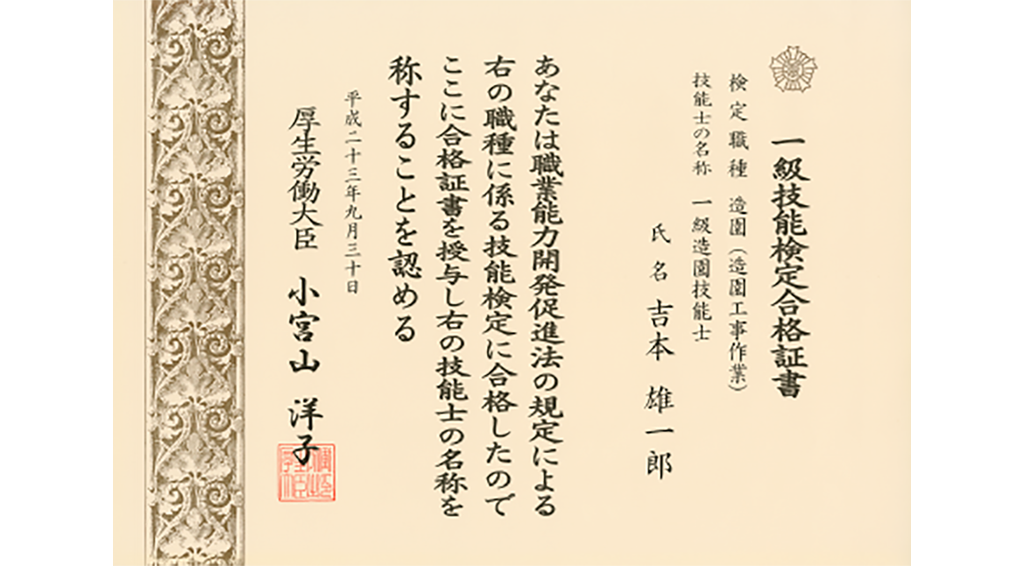 一級技能検定合格証書
検定職種 造園(造園工事作業)
技能士の名称 一級造園技能士
氏名 吉本 雄一郎
あなたは職業能力開発促進法の規定による
右の職種に係る技能検定に合格したので
ここに合格証書を授与し右の技能士の名称を
称することを認める
平成二十三年九月三十日
厚生労働大臣 小宮山 洋子